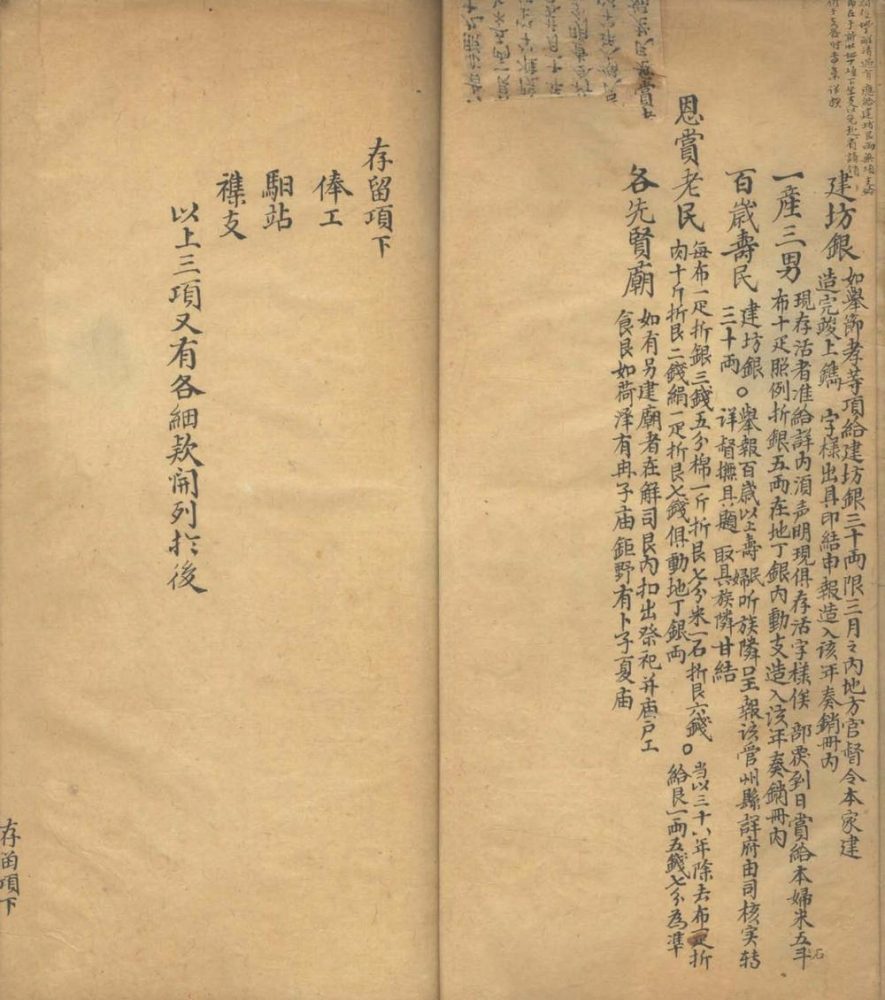 建坊銀
如舉節孝等項給建坊銀三十兩限三月之內地方官督令本家建
造完竣上鐫 字樣出具印結申報造入該年奏銷冊內
一產三男
現存活者准給詳內湏声明現俱存活字樣俟 部覆到日賞給本婦米五斗
石
布十疋照例折銀五兩在地丁銀內動支造入該年奏銷冊內
百歲壽民
建坊銀
三十兩
舉報百歲以上壽民婦听族隣呈報該管州縣詳府由司核实轉
详督撫具題 取具族隣甘結
恩賞老民
每布一疋折銀三錢五分棉一斤折艮七分米一石折艮六錢
肉十斤折艮二錢絹一疋折艮七錢俱動地丁銀両
当以三十六年除去布疋折
給艮一両五錢七分為準
各先賢廟
如有另建廟者在解司艮內扣出祭祀并庙戶工
食艮如荷泽有冉子庙鉅野有卜子夏庙
存留項下
俸工
馹站
襍支
以上三項又有各細欵開列扵後
存留項下